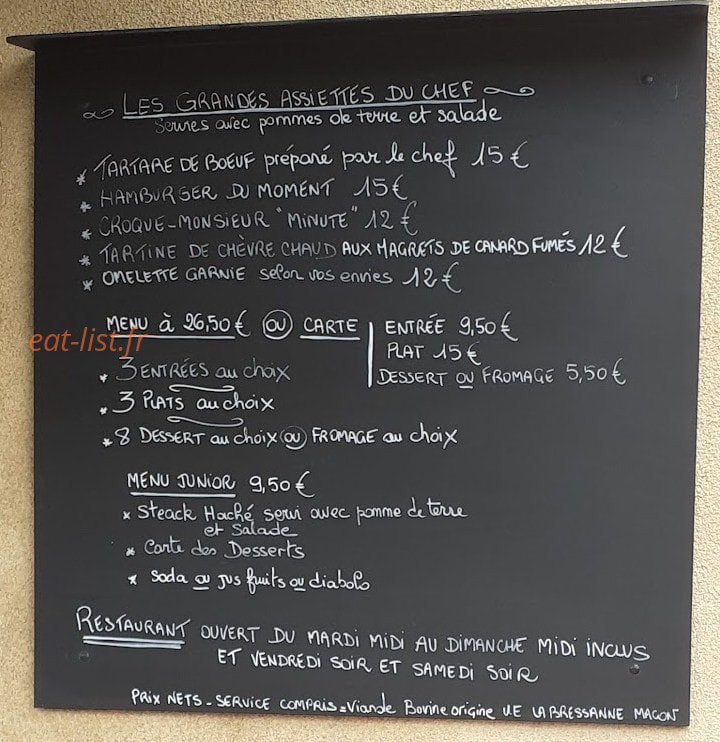 LES GRANDES ASSIETTES DU CHEF
Servies avec pommes de terre et salade
* TARTARE DE BOEUF préparé par le chef 15 €
* HAMBURGER DU MOMENT 15 €
* CROQUE-MONSIEUR "MINUTE" 12 €
* TARTINE DE CHÈVRE CHAUD AUX MAGRETS DE CANARD FUMÉS 12 €
* OMELETTE GARNIE selon vos envies 12 €
MENU à 26,50 € OU CARTE
ENTRÉE 9,50 €
PLAT 15 €
DESSERT OU FROMAGE 5,50 €
eat-list.fr
* 3 ENTRÉES au choix
* 3 PLATS au choix
* 8 DESSERT au choix OU FROMAGE au choix
MENU JUNIOR 9,50 €
* Steack Haché servi avec pomme de terre
et Salade
* Carte des Desserts
* Soda ou jus fruits ou diabolo
RESTAURANT OUVERT DU MARDI MIDI AU DIMANCHE MIDI INCLUS
ET VENDREDI SOIR ET SAMEDI SOIR
PRIX NETS - SERVICE COMPRIS = Viande Bovine origine UE LA BRESSANNE MACON